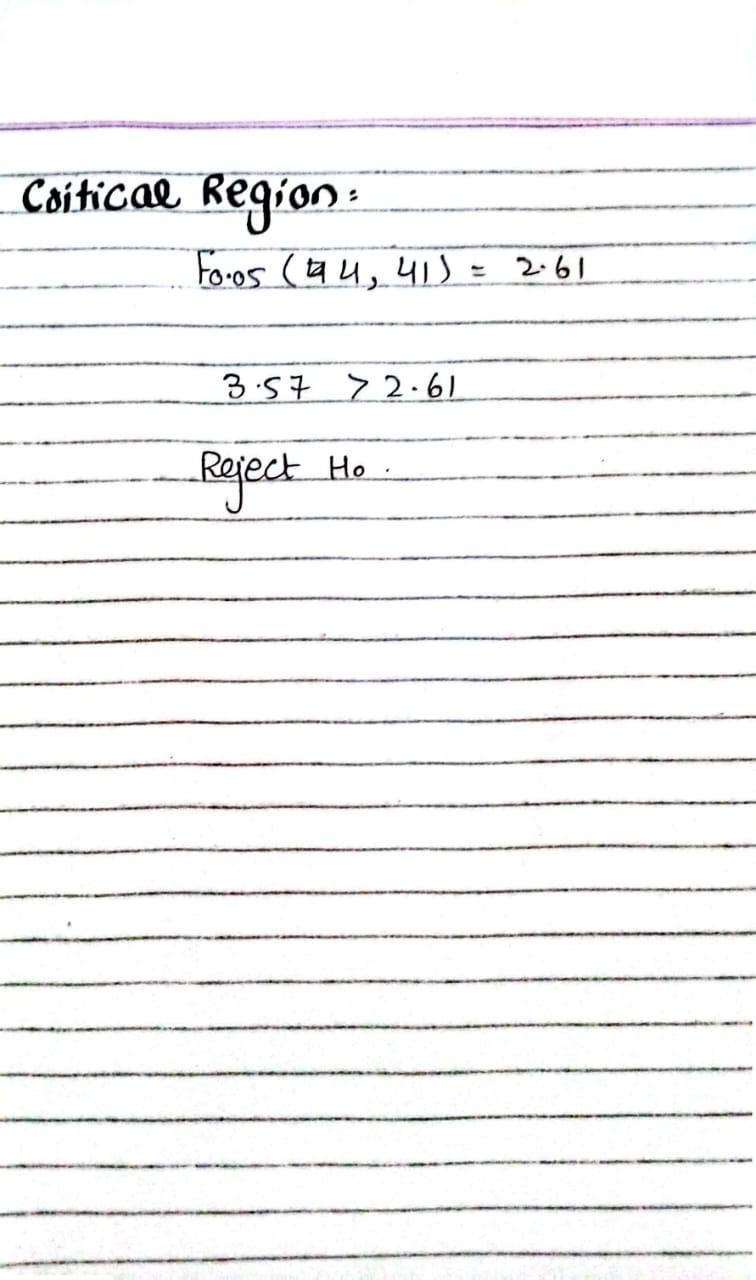 Critical Region:
F0.05 (4, 41) = 2.61
3.57 > 2.61
Reject Ho.